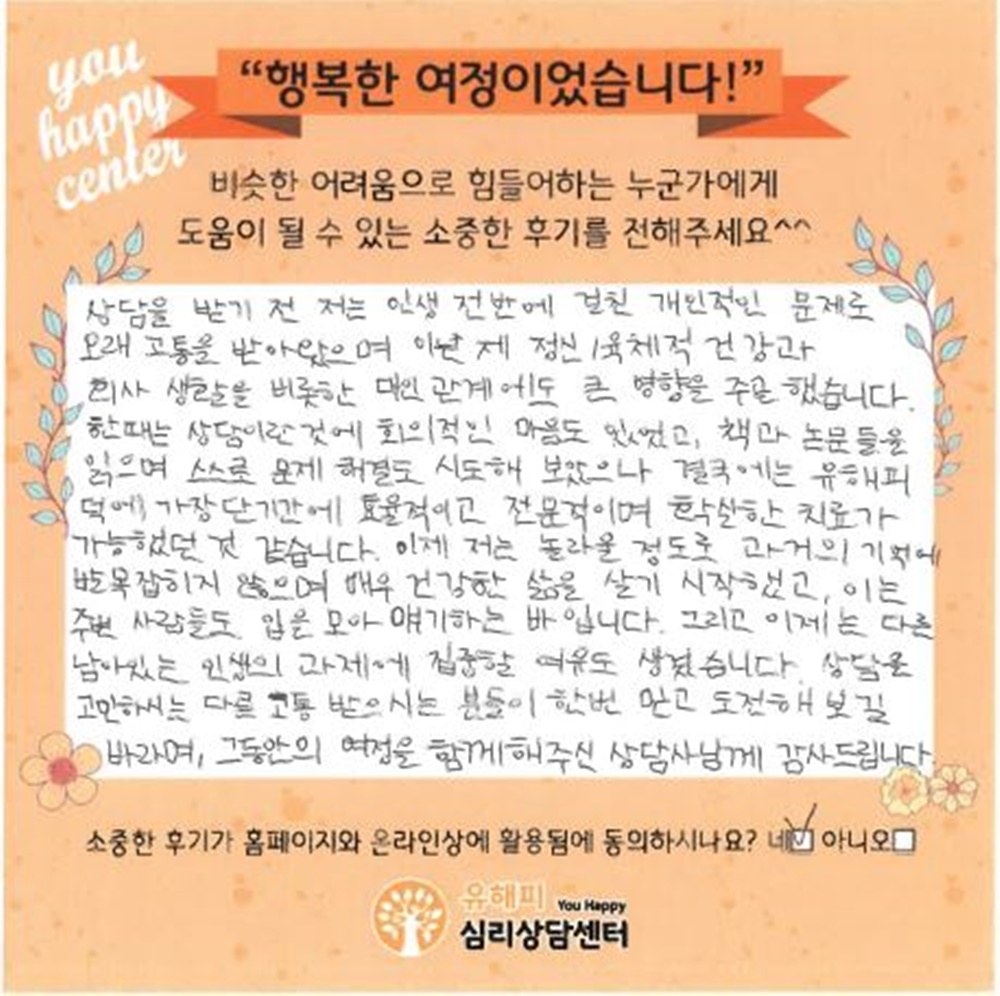 you
happy
center
“행복한 여정이었습니다!”
비슷한 어려움으로 힘들어하는 누군가에게
도움이 될 수 있는 소중한 후기를 전해주세요^^
상담을 받기 전 저는 인생 전반에 걸친 개인적인 문제로
오래 고통을 받아왔으며 이는 제 정신/육체적 건강과
회사 생활을 비롯한 대인관계에도 큰 영향을 주곤 했습니다.
한때는 상담이란것에 회의적인 마음도 있었고, 책과 논문들을
읽으며 스스로 문제 해결도 시도해 보았으나 결국에는 유해피
덕에 가장단기간에 효율적이고 전문적이며 확실한 치료가
가능했던 것 같습니다. 이제 저는 놀라울 정도로 과거의 기억에
발목잡히지 않으며 매우 건강한 삶을 살기 시작했고, 이는
주변 사람들도 입을 모아 얘기하는 바 입니다. 그리고 이제는 다른
남아있는 인생의 과제에 집중할 여유도 생겼습니다. 상담을
고민하시는 다른 고통 받으시는 분들이 한번 믿고 도전해 보길
바라며, 그동안의 여정을 함께해주신 상담사님께 감사드립니다.
소중한 후기가 홈페이지와 온라인상에 활용됨에 동의하시나요? 네 아니오
유해피 You Happy
심리상담센터